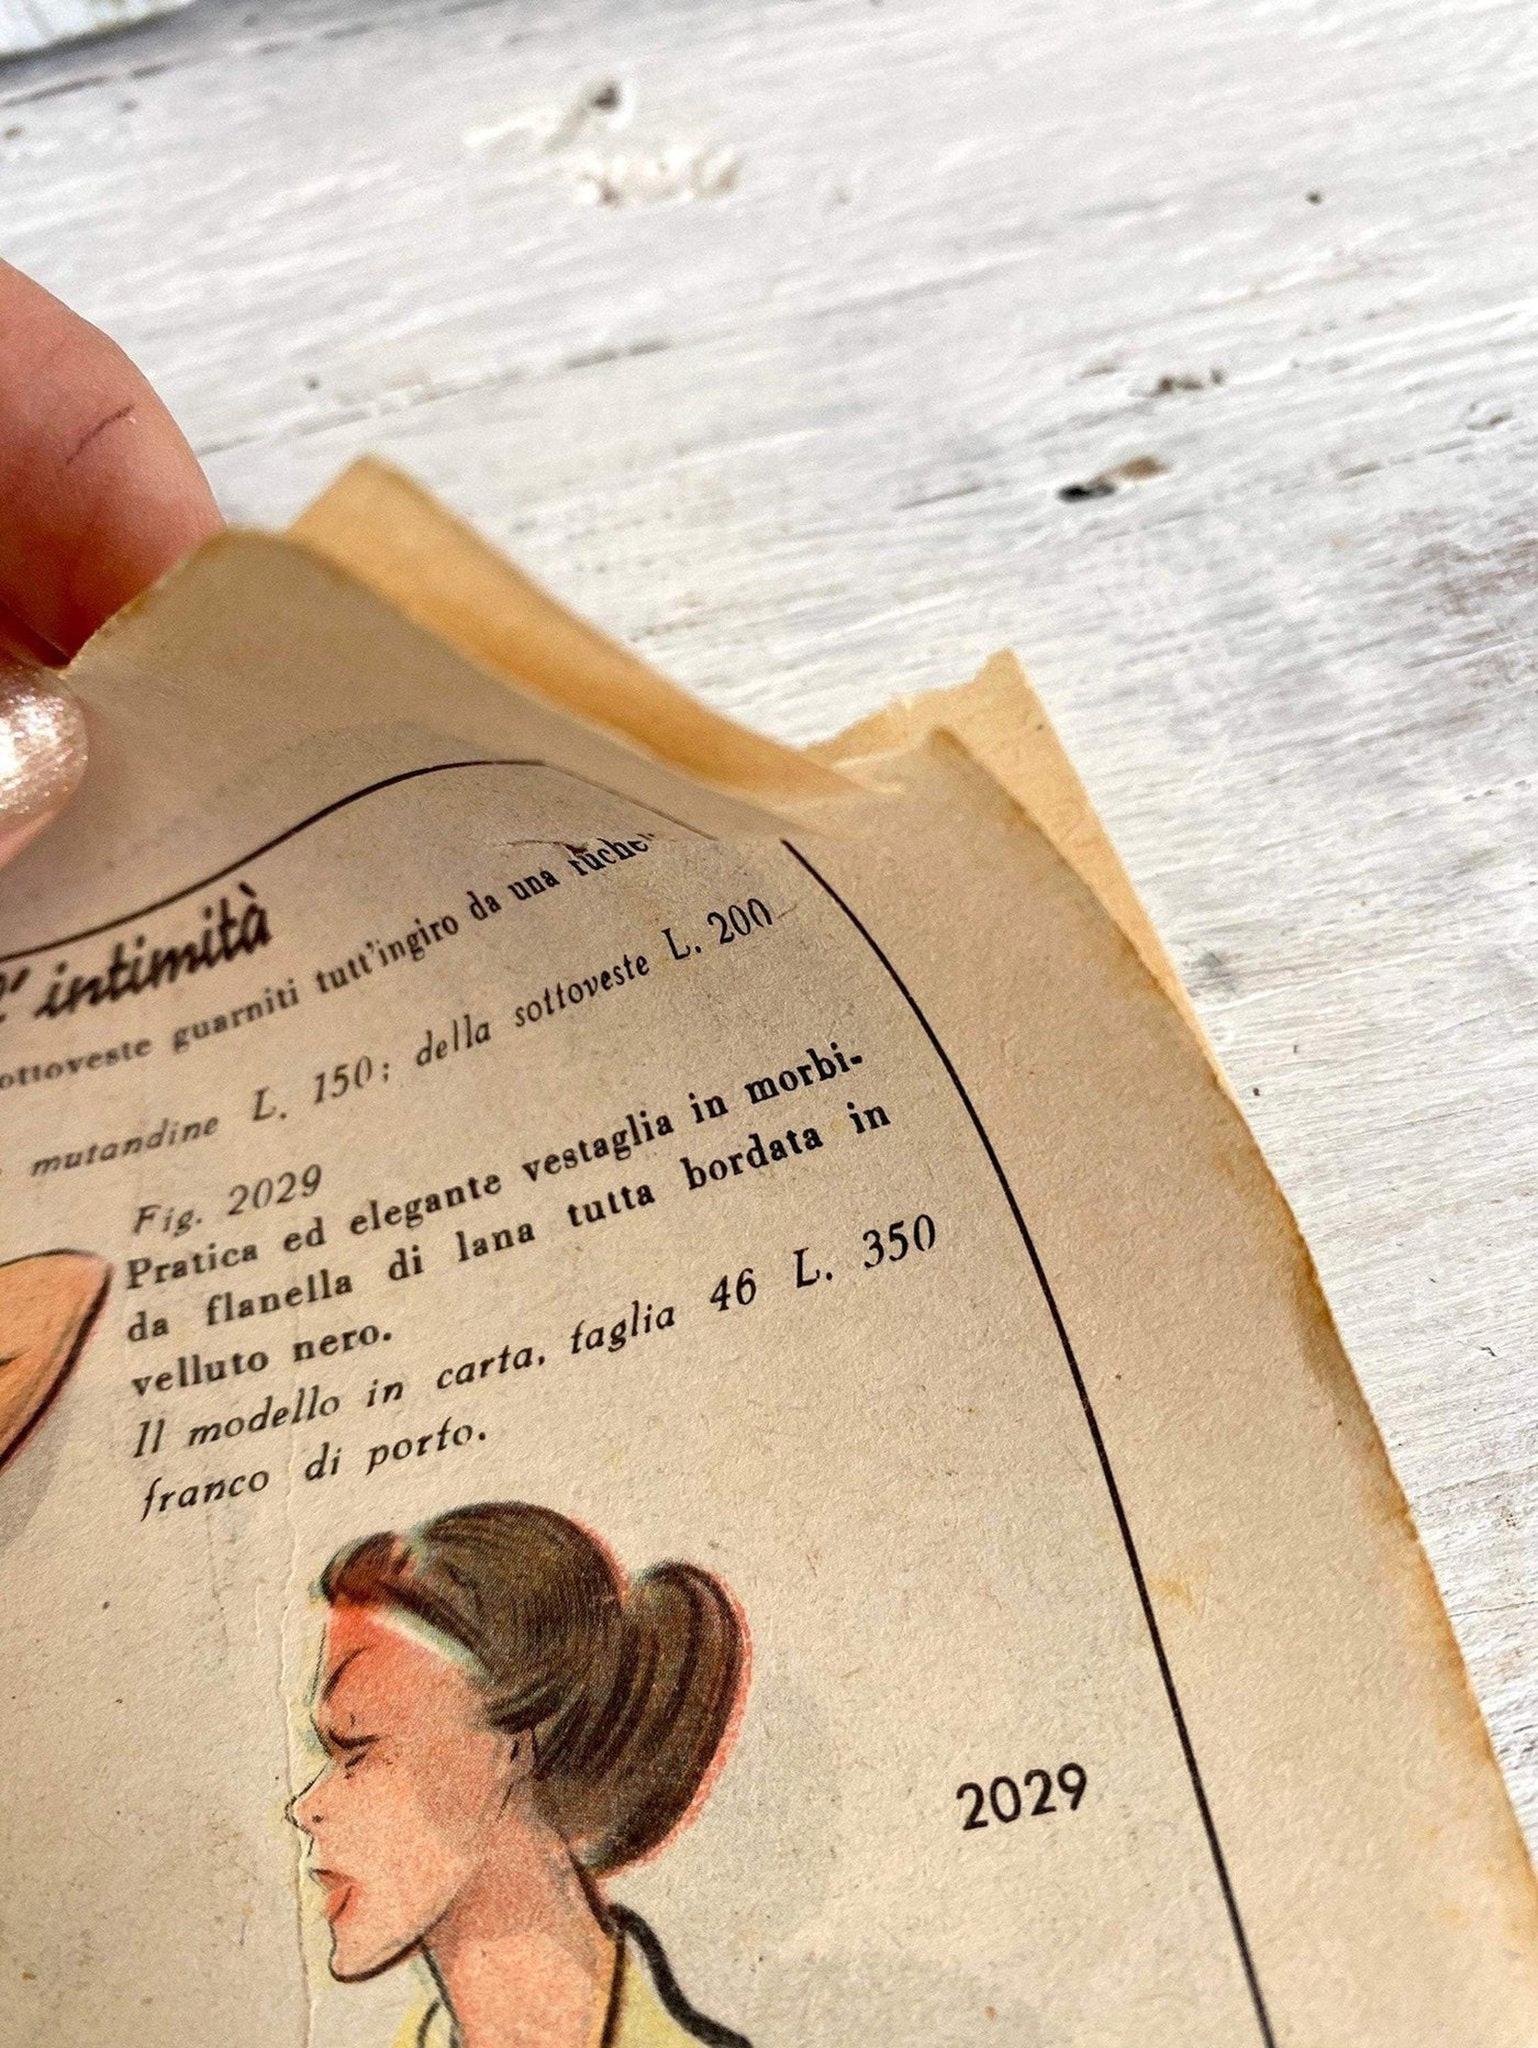 l'intimità
sottoveste guarniti tutt'ingiro da una
mutandine L. 150; della sottoveste L. 200
Fig. 2029
Pratica ed elegante vestaglia in morbi-
da flanella di lana tutta bordata in
velluto nero.
Il modello in carta, taglia 46 L. 350
franco di porto.
2029